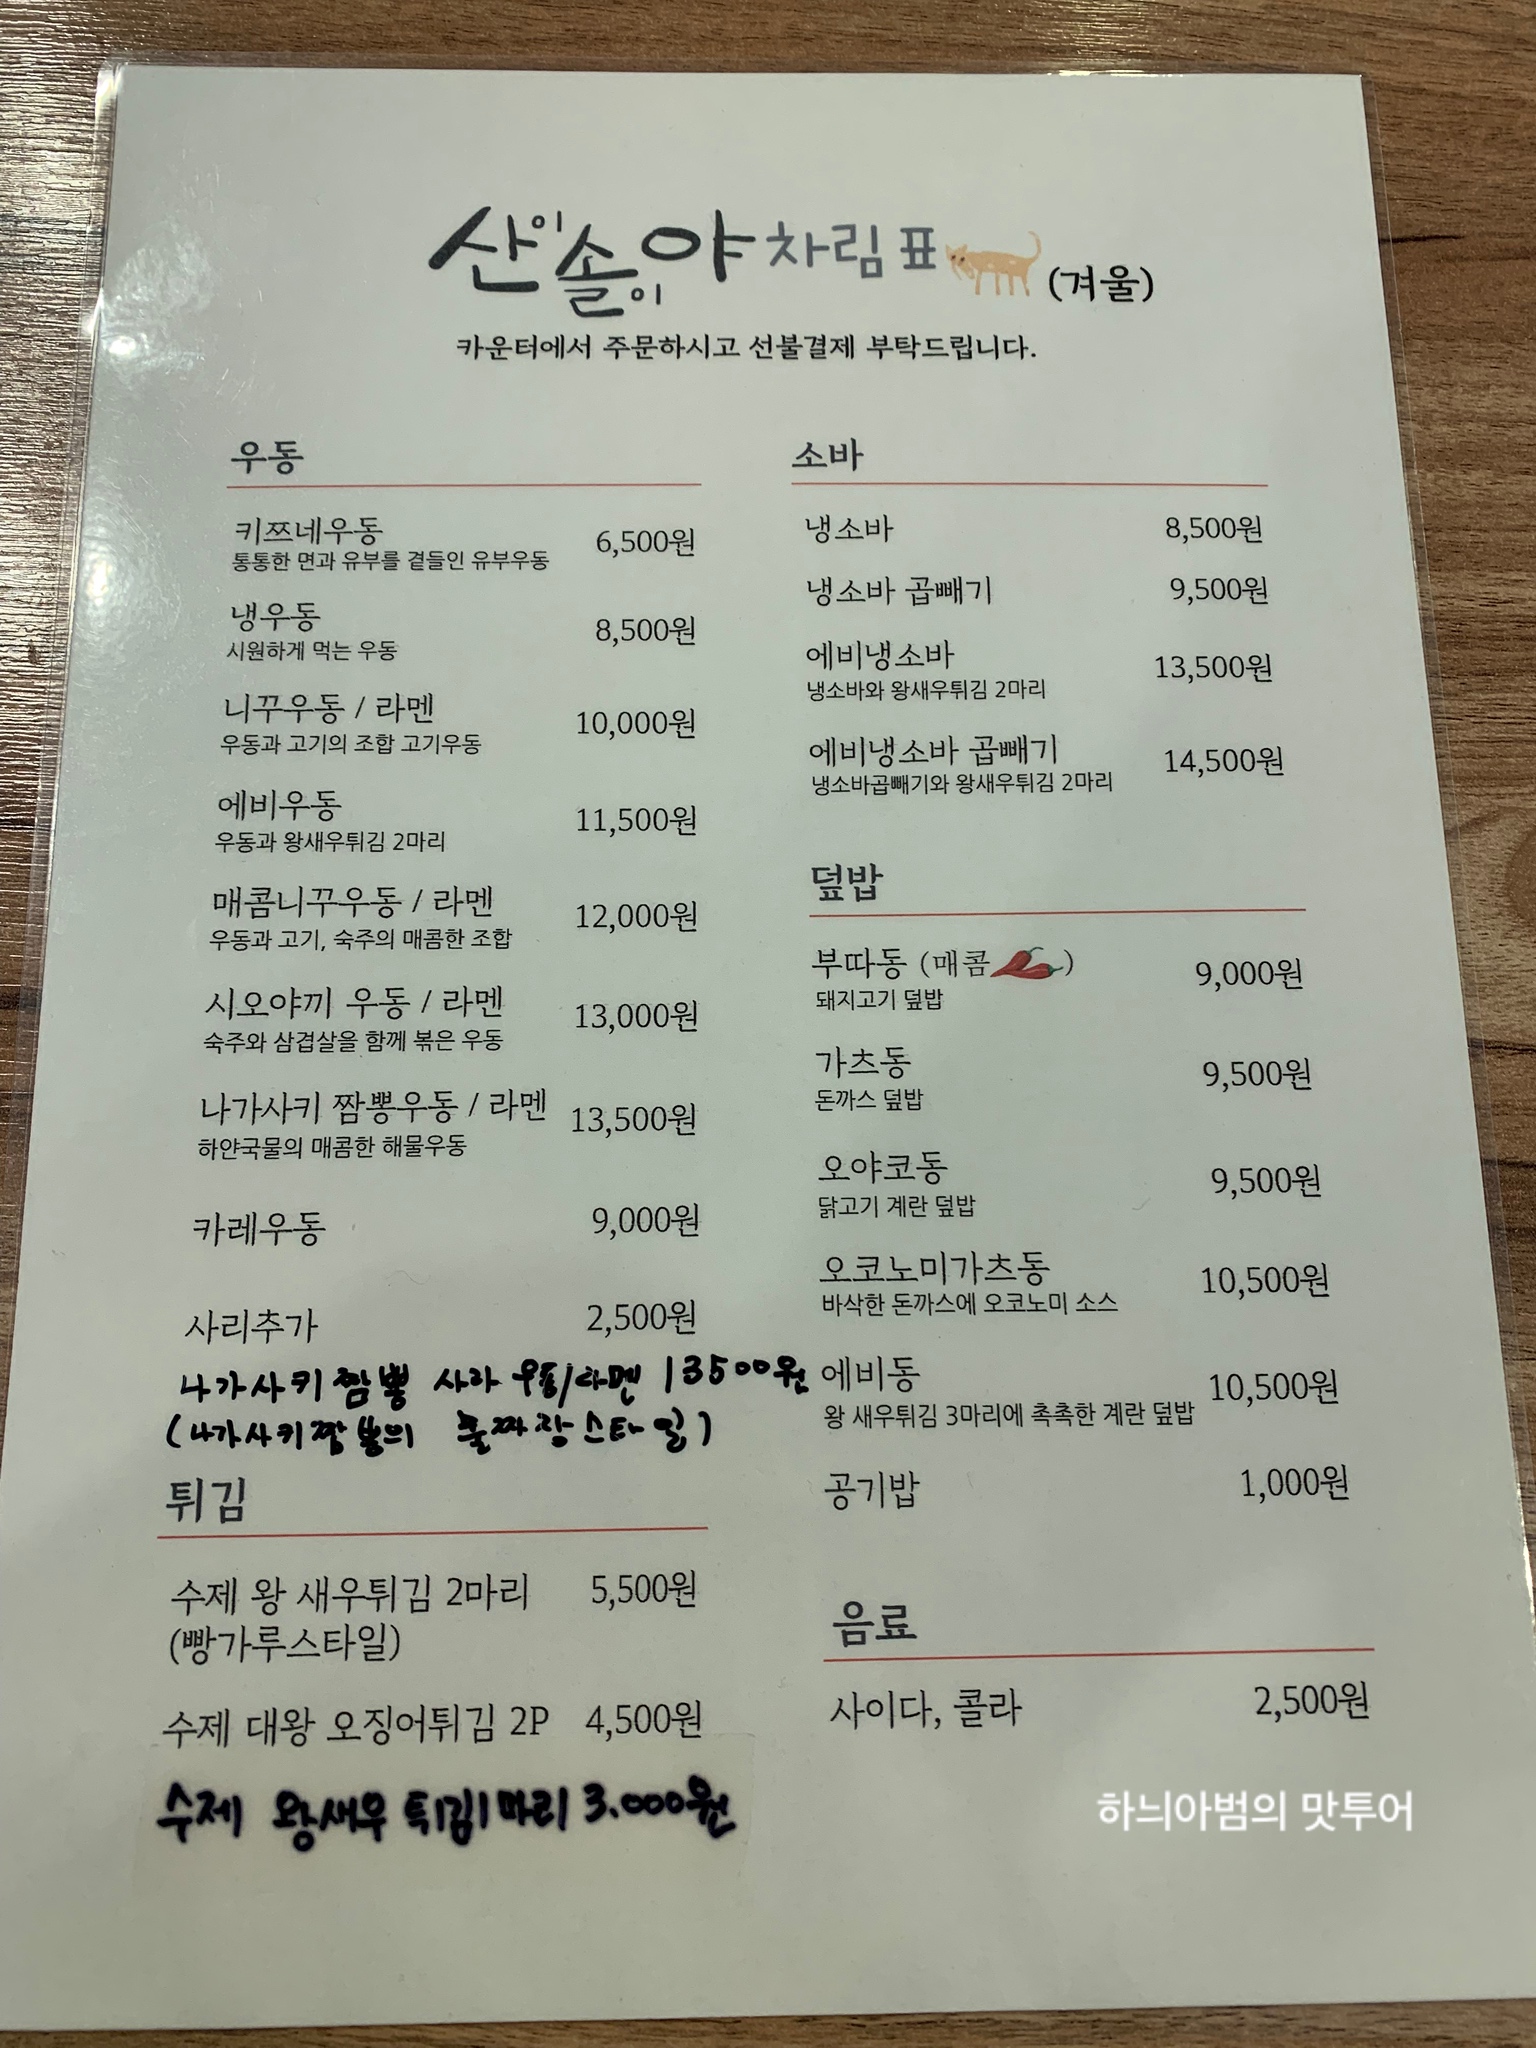 산이솔이야 차림표 (겨울)
카운터에서 주문하시고 선불결제 부탁드립니다.
우동
키쯔네우동 6,500원
통통한 면과 유부를 곁들인 유부우동
냉우동 8,500원
시원하게 먹는 우동
니꾸우동 / 라멘 10,000원
우동과 고기의 조합 고기우동
에비우동 11,500원
우동과 왕새우튀김 2마리
매콤니꾸우동 / 라멘 12,000원
우동과 고기, 숙주의 매콤한 조합
시오야끼 우동 / 라멘 13,000원
숙주와 삼겹살을 함께 볶은 우동
나가사키 짬뽕우동 / 라멘 13,500원
하얀국물의 매콤한 해물우동
카레우동 9,000원
사리추가 2,500원
나가사키 짬뽕 사라 우동/라멘 13500원
(나가사키짬뽕의 물짜장스타일)
튀김
수제 왕 새우튀김 2마리 5,500원
(빵가루스타일)
수제 대왕 오징어튀김 2P 4,500원
수제 왕새우 튀김1마리 3.000원
소바
냉소바 8,500원
냉소바 곱빼기 9,500원
에비냉소바 13,500원
냉소바와 왕새우튀김 2마리
에비냉소바 곱빼기 14,500원
냉소바곱빼기와 왕새우튀김 2마리
덮밥
부따동 (매콤) 9,000원
돼지고기 덮밥
가츠동 9,500원
돈까스 덮밥
오야코동 9,500원
닭고기 계란 덮밥
오코노미가츠동 10,500원
바삭한 돈까스에 오코노미 소스
에비동 10,500원
왕 새우튀김 3마리에 촉촉한 계란 덮밥
공기밥 1,000원
음료
사이다, 콜라 2,500원
하늬아범의 맛투어